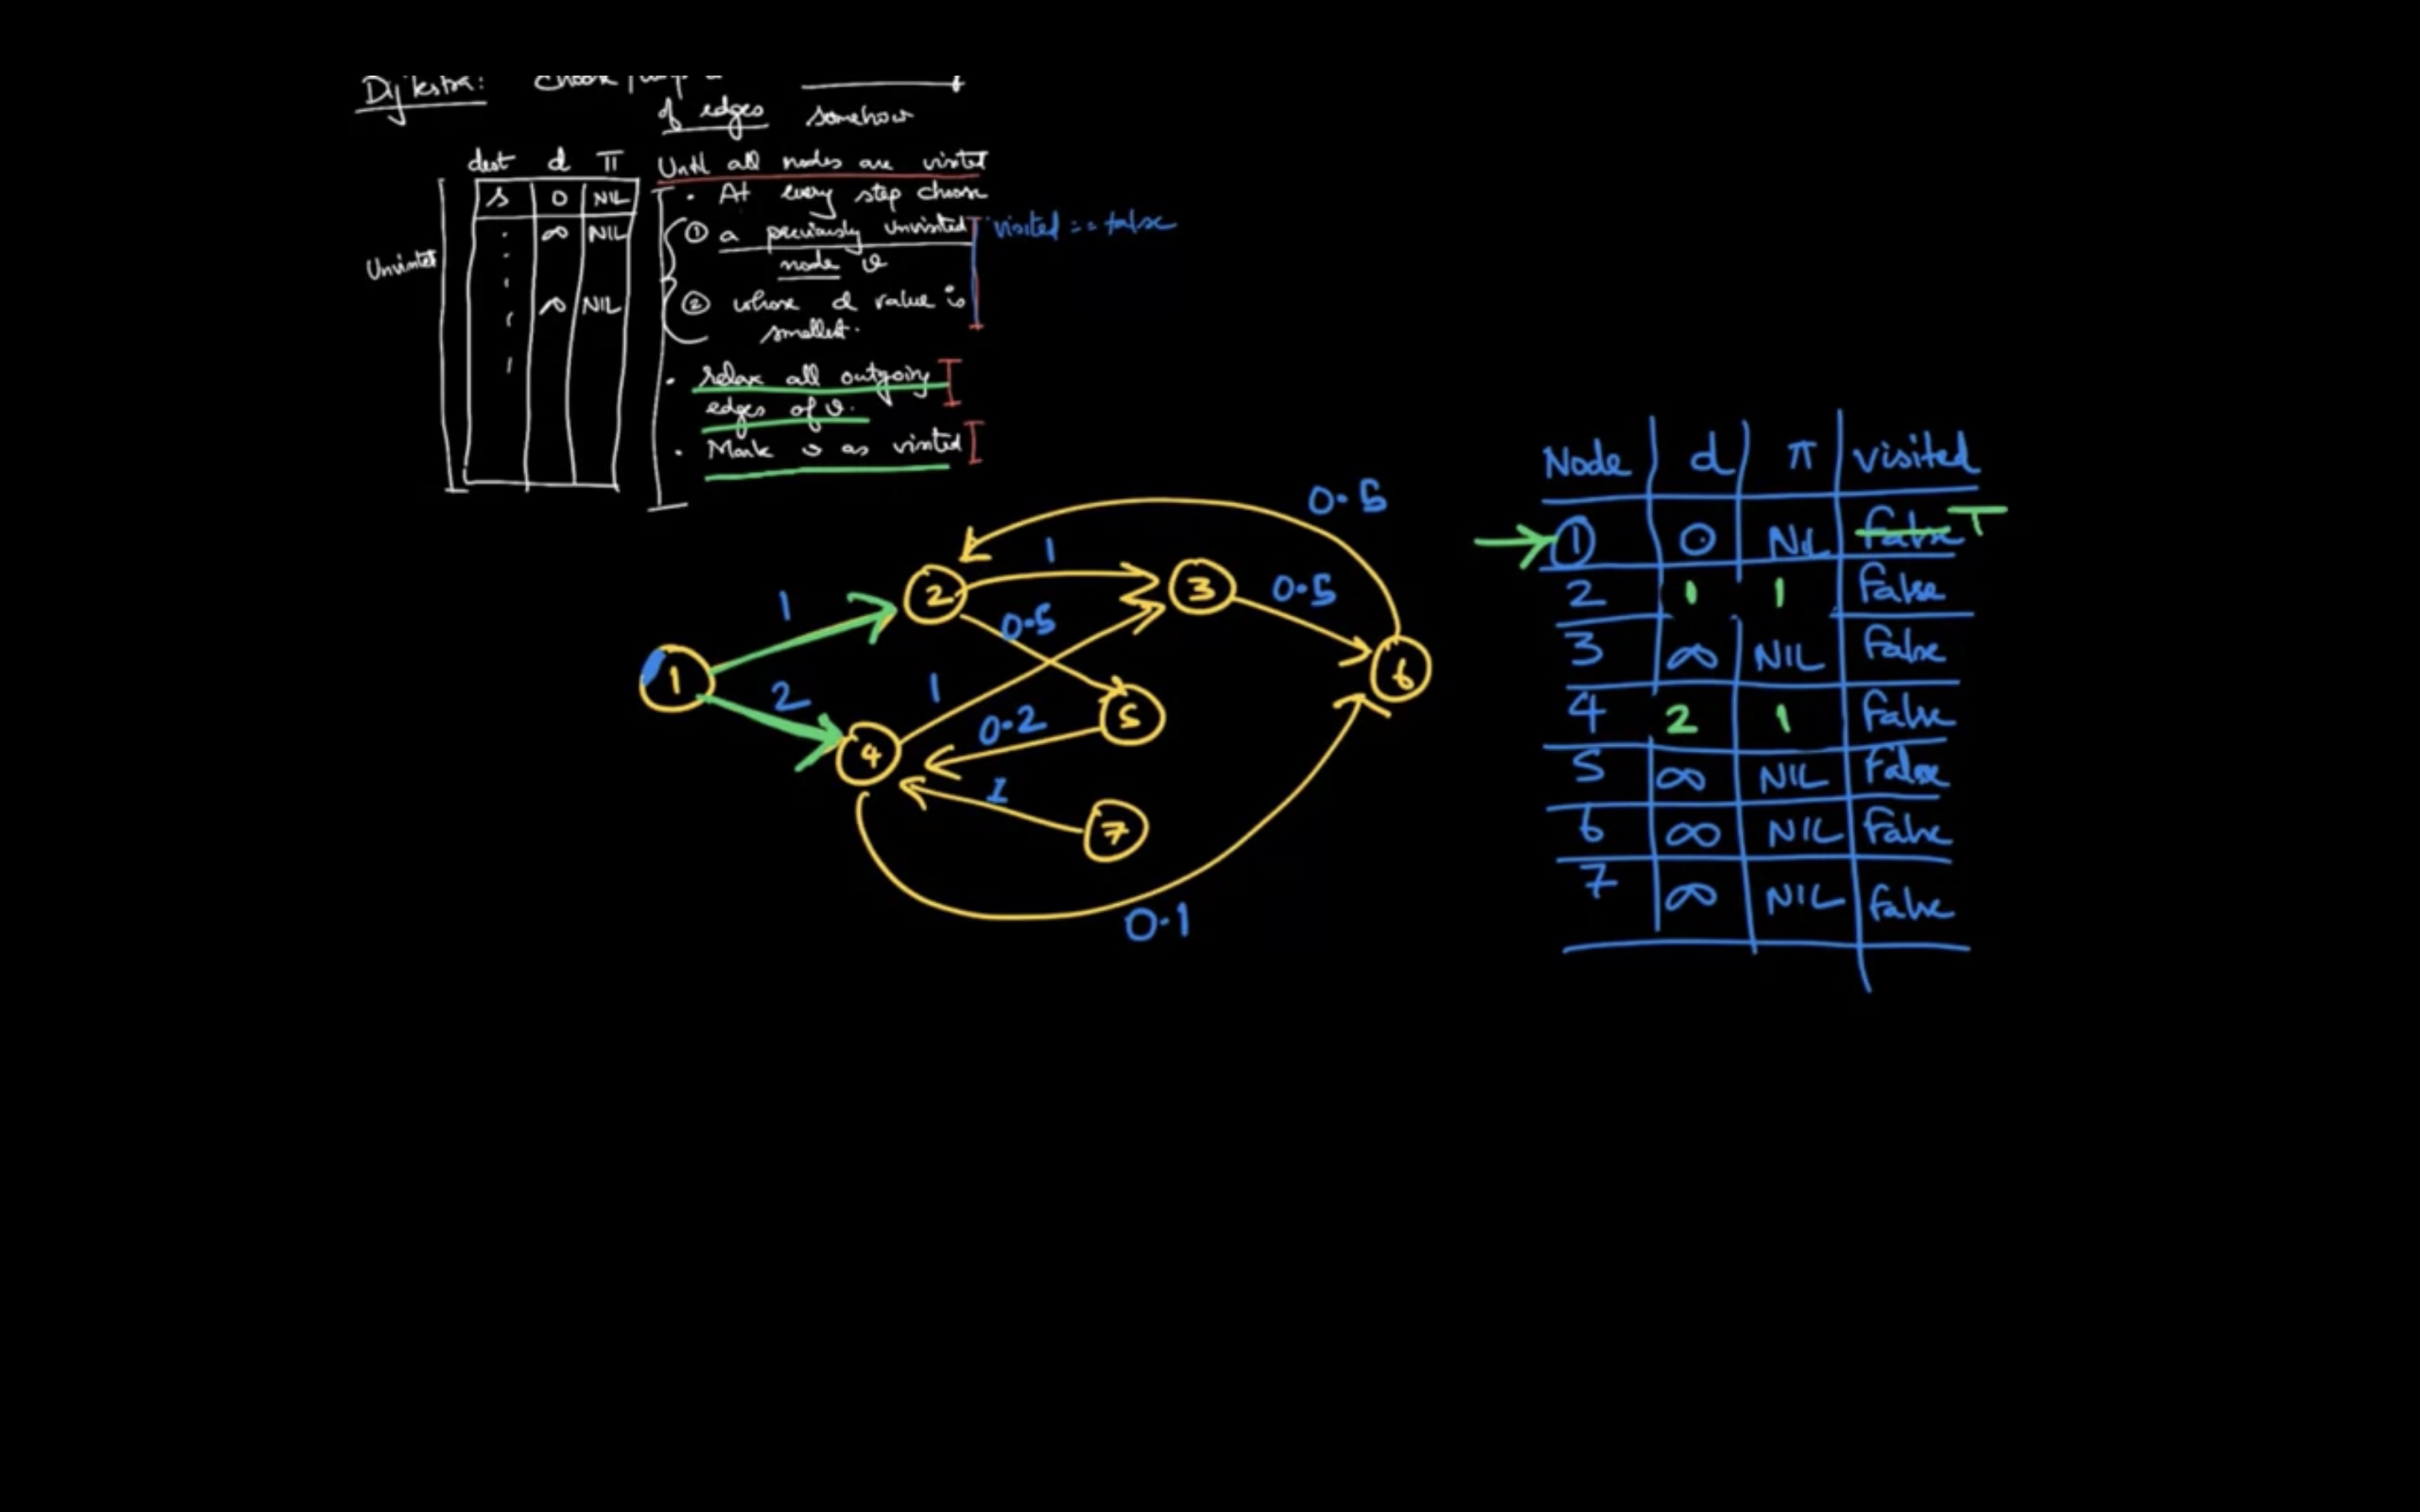 Dijkstra:
of edges somehow
dest d π
S 0 NIL
∞ NIL
∞ NIL
Unvisited
Until all nodes are visited
• At every step choose
① a previously unvisited
node v
② whose d value is
smallest.
visited == false
• relax all outgoing
edges of v.
• Mark v as visited
1
2
3
4
5
6
7
1
2
1
0.5
1
0.2
1
0.5
0.5
0.1
Node d π visited
① 0 NIL false T
2 1 1 false
3 ∞ NIL false
4 2 1 false
5 ∞ NIL False
6 ∞ NIL false
7 ∞ NIL false